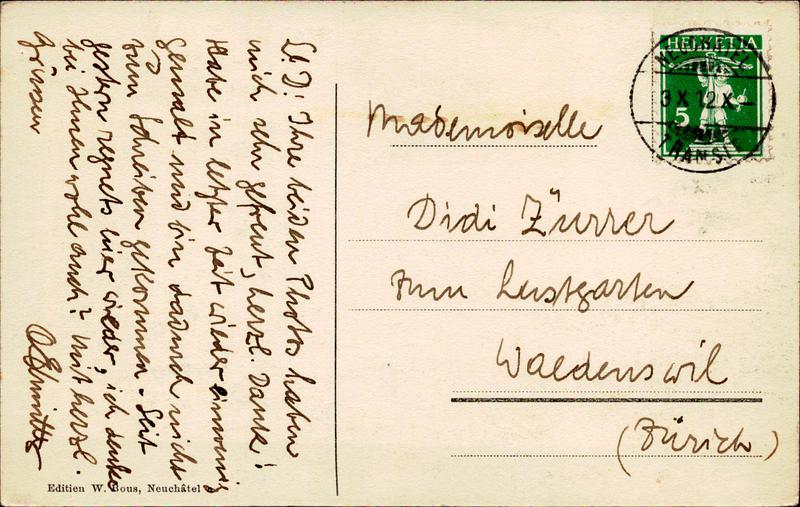 L. D. Ihre beiden Photos haben
mich sehr gefreut, herzl. Dank!
Habe in letzter Zeit wieder ein wenig
gemalt und bin dadurch nicht
zum Schreiben gekommen. Seit
gestern regnets hier wieder, ich denke
bei Ihnen wohl auch? Mit herzl.
Grüssen
Mademoiselle
Didi Zürrer
zum Lustgarten
Waedenswil
(Zürich)
HELVETIA
5
3 X 12 X
Edition W. Bous, Neuchâtel